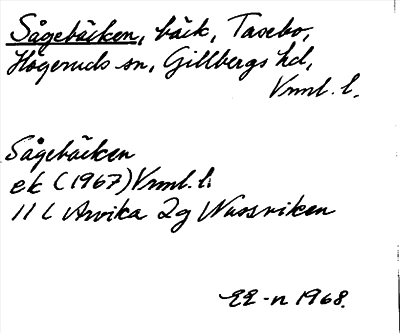 Sågebäcken, bäck, Tasebo,
Högeruds sn, Gillbergs hd,
Vrml. l.
Sågebäcken
ek (1967) Vrml. l.
11 C Arvika 2g Nussviken
EE-n 1968.